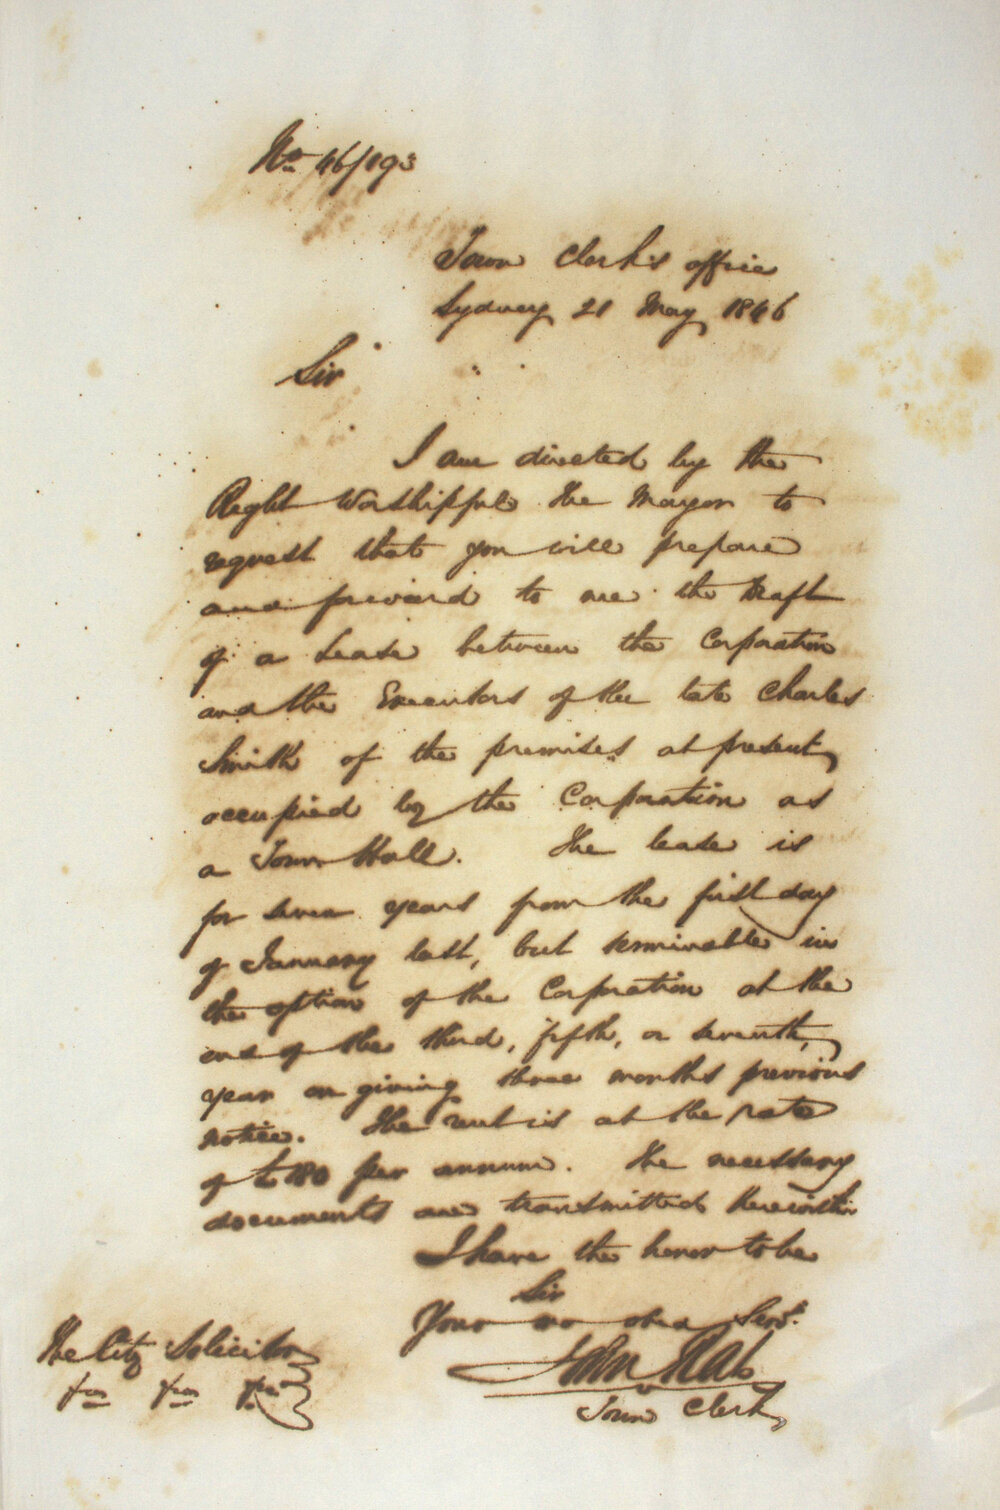 No. 46/193
Town Clerk's office
Sydney 21 May 1846
Sir
I am directed by the
Right Worshipful the Mayor to
request that you will prepare
and forward to me the Draft
of a Lease between the Corporation
and the Executors of the late Charles
Smith of the premises at present
occupied by the Corporation as
a Town Hall. The lease is
for seven years from the first day
of January last, but terminable in
the option of the Corporation at the
end of the third, fifth, or seventh,
year on giving three months previous
notice. The rent is at the rate
of £180 per annum. The necessary
documents are transmitted herewith
I have the honor to be
Sir
Your mo obed Servt.
John
Town Clerk
The City Solicitor